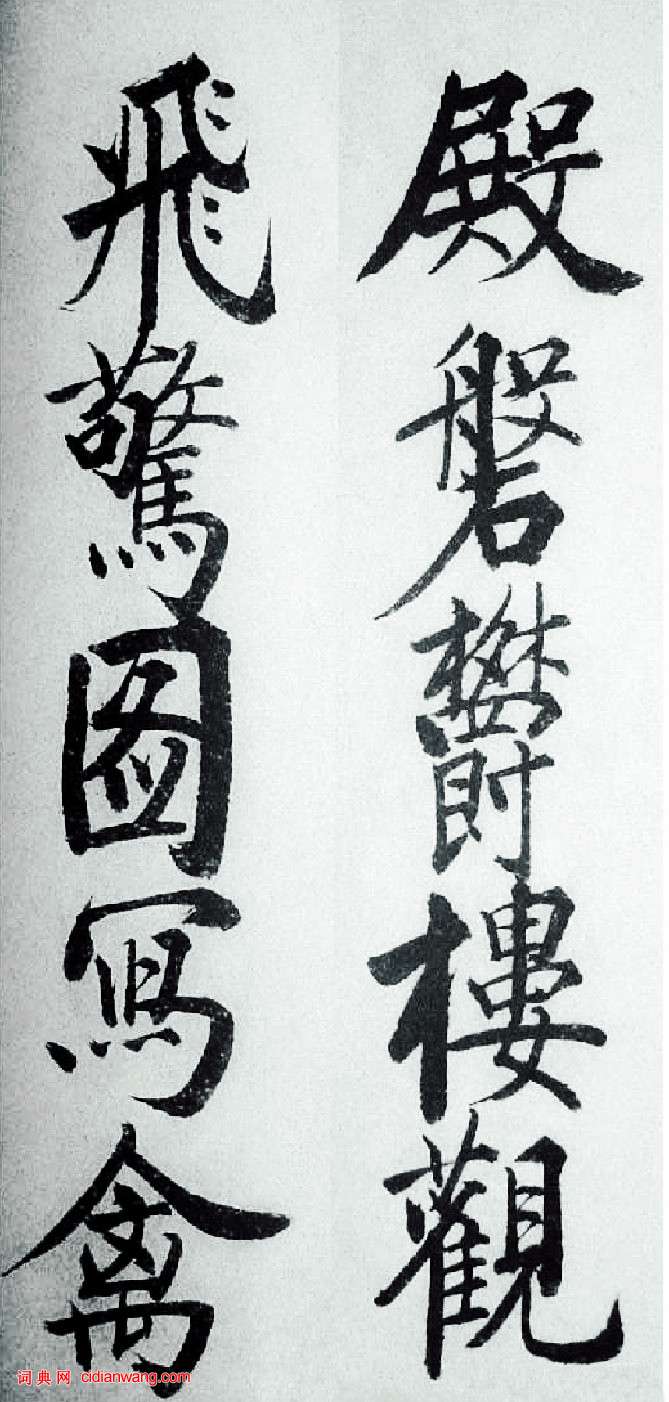 殿磐欝樓觀
飛驚圖寫禽
词典网 cidianwang.com